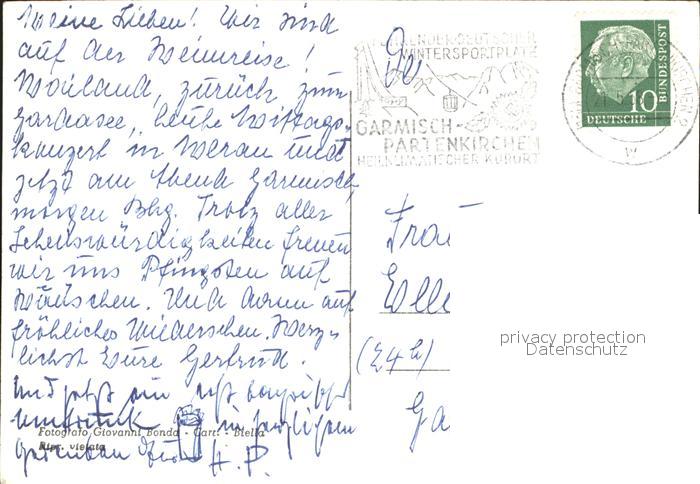 Meine Lieben! Wir sind
auf der Heimreise!
Mailand, zurück zum
Gardasee, heute Mittags-
konzert in Meran und
jetzt am Abend Garmisch,
morgen Bbg. Trotz aller
Sehenswürdigkeiten freuen
wir uns Pfingsten auf
Häuschen. Und dann auf
fröhliches Wiedersehen. Herz-
lichst Eure Gertrud.
Und jetzt ein
Umtrunk in
H. P.
Fotografo Giovanni Bonda - Cart. - Biella
Ripr. vietata
FÜHRENDER DEUTSCHER
WINTERSPORTPLATZ
GARMISCH-
PARTENKIRCHEN
HEILKLIMATISCHER KURORT
DEUTSCHE
BUNDESPOST
10
Frau
Elle
(24b)
Ga
privacy protection
Datenschutz